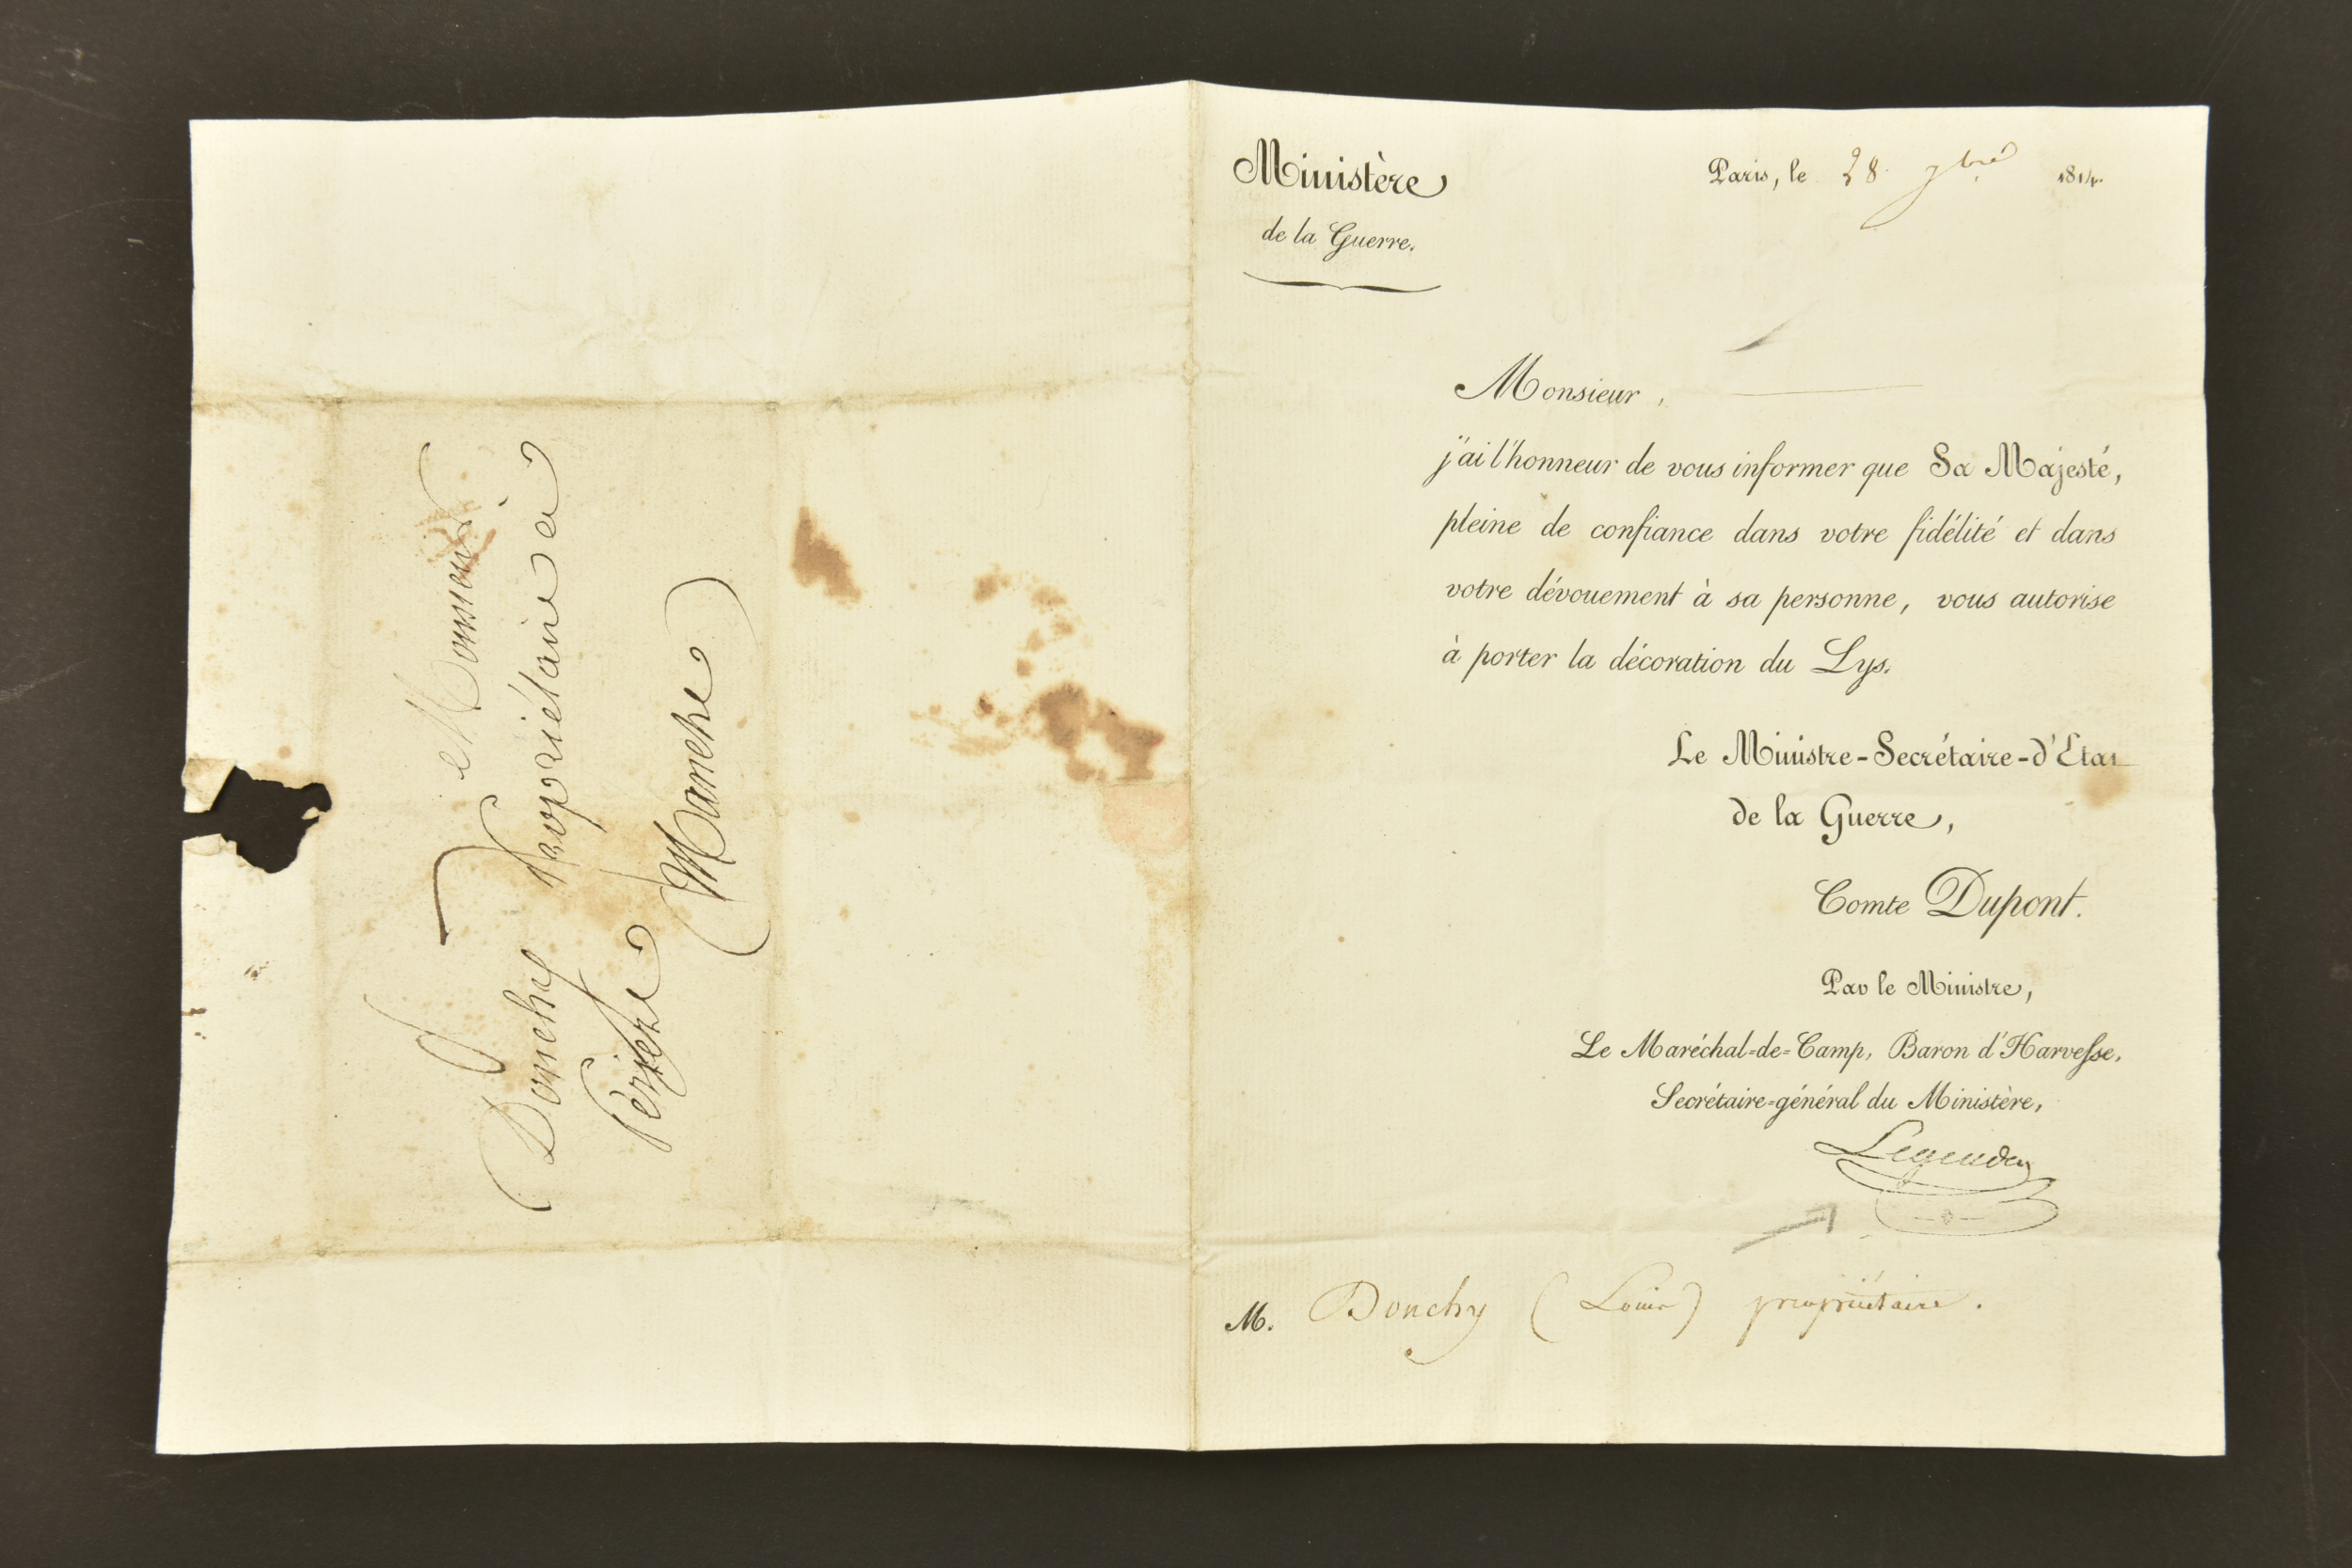 Monsieur
Donchy Propriétaire à
Periers
(Manche)
Ministère
de la Guerre.
Paris, le 28 7bre 1814.
Monsieur,
j'ai l'honneur de vous informer que Sa Majesté,
pleine de confiance dans votre fidélité et dans
votre dévouement à sa personne, vous autorise
à porter la décoration du Lys.
Le Ministre-Secrétaire-d'Etat
de la Guerre,
Comte Dupont.
Par le Ministre,
Le Maréchal-de-Camp, Baron d'Harvesse,
Secrétaire-général du Ministère,
M. Donchy (Louis) propriétaire.